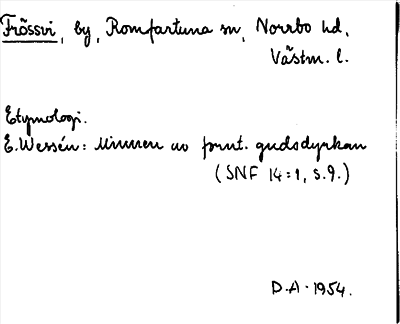 Frössvi, by, Romfartuna sn, Norrbo hd,
Västm. l.
Etymologi.
E. Wessén: Minnen av fornt. gudsdyrkan
(SNF 14:1, s.9.)
D.A. 1954.